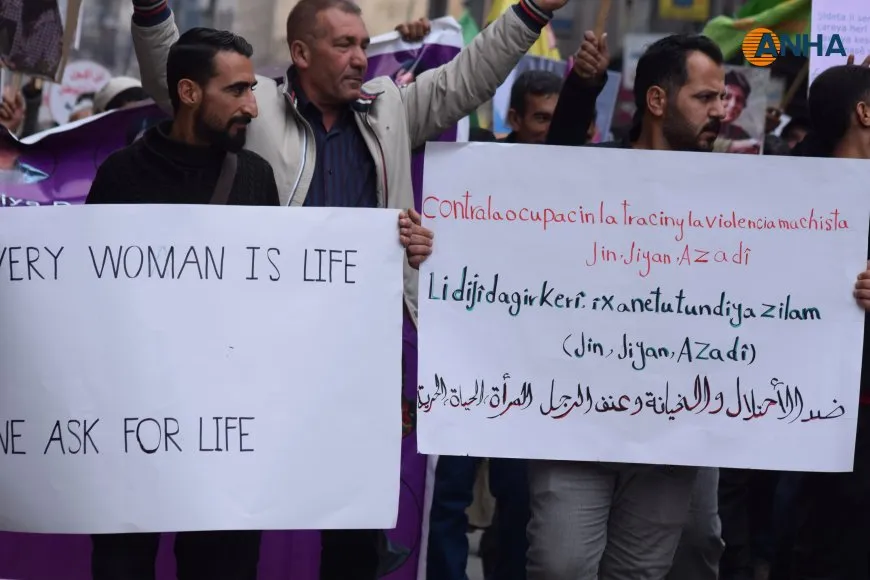 ANHA
VERY WOMAN IS LIFE
WE ASK FOR LIFE
Contra la ocupacin la traciny la violencia machista
Jin, Jiyan, Azadî
Li dijî dagirkerî, ixanetu tundiya zilam
(Jin, Jiyan, Azadî)
ضد الأحتلال والخيانة وعنف الرجل المرأة، الحياة، الحرية